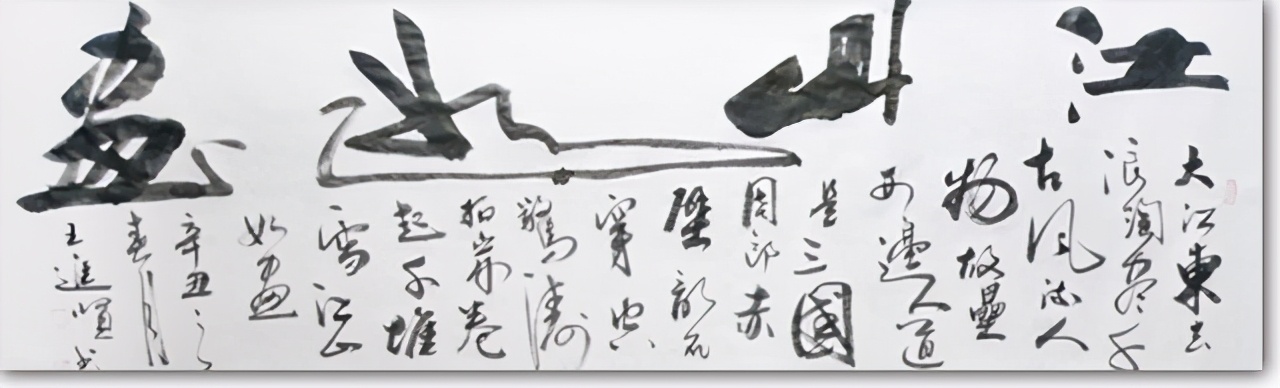 江山如畫
大江東去
浪淘盡千
古風流人
物故壘
西邊人道
是三國
周郎赤
壁亂石
穿空
驚濤
拍岸卷
起千堆
雪江山
如畫
辛丑之
春月
王進